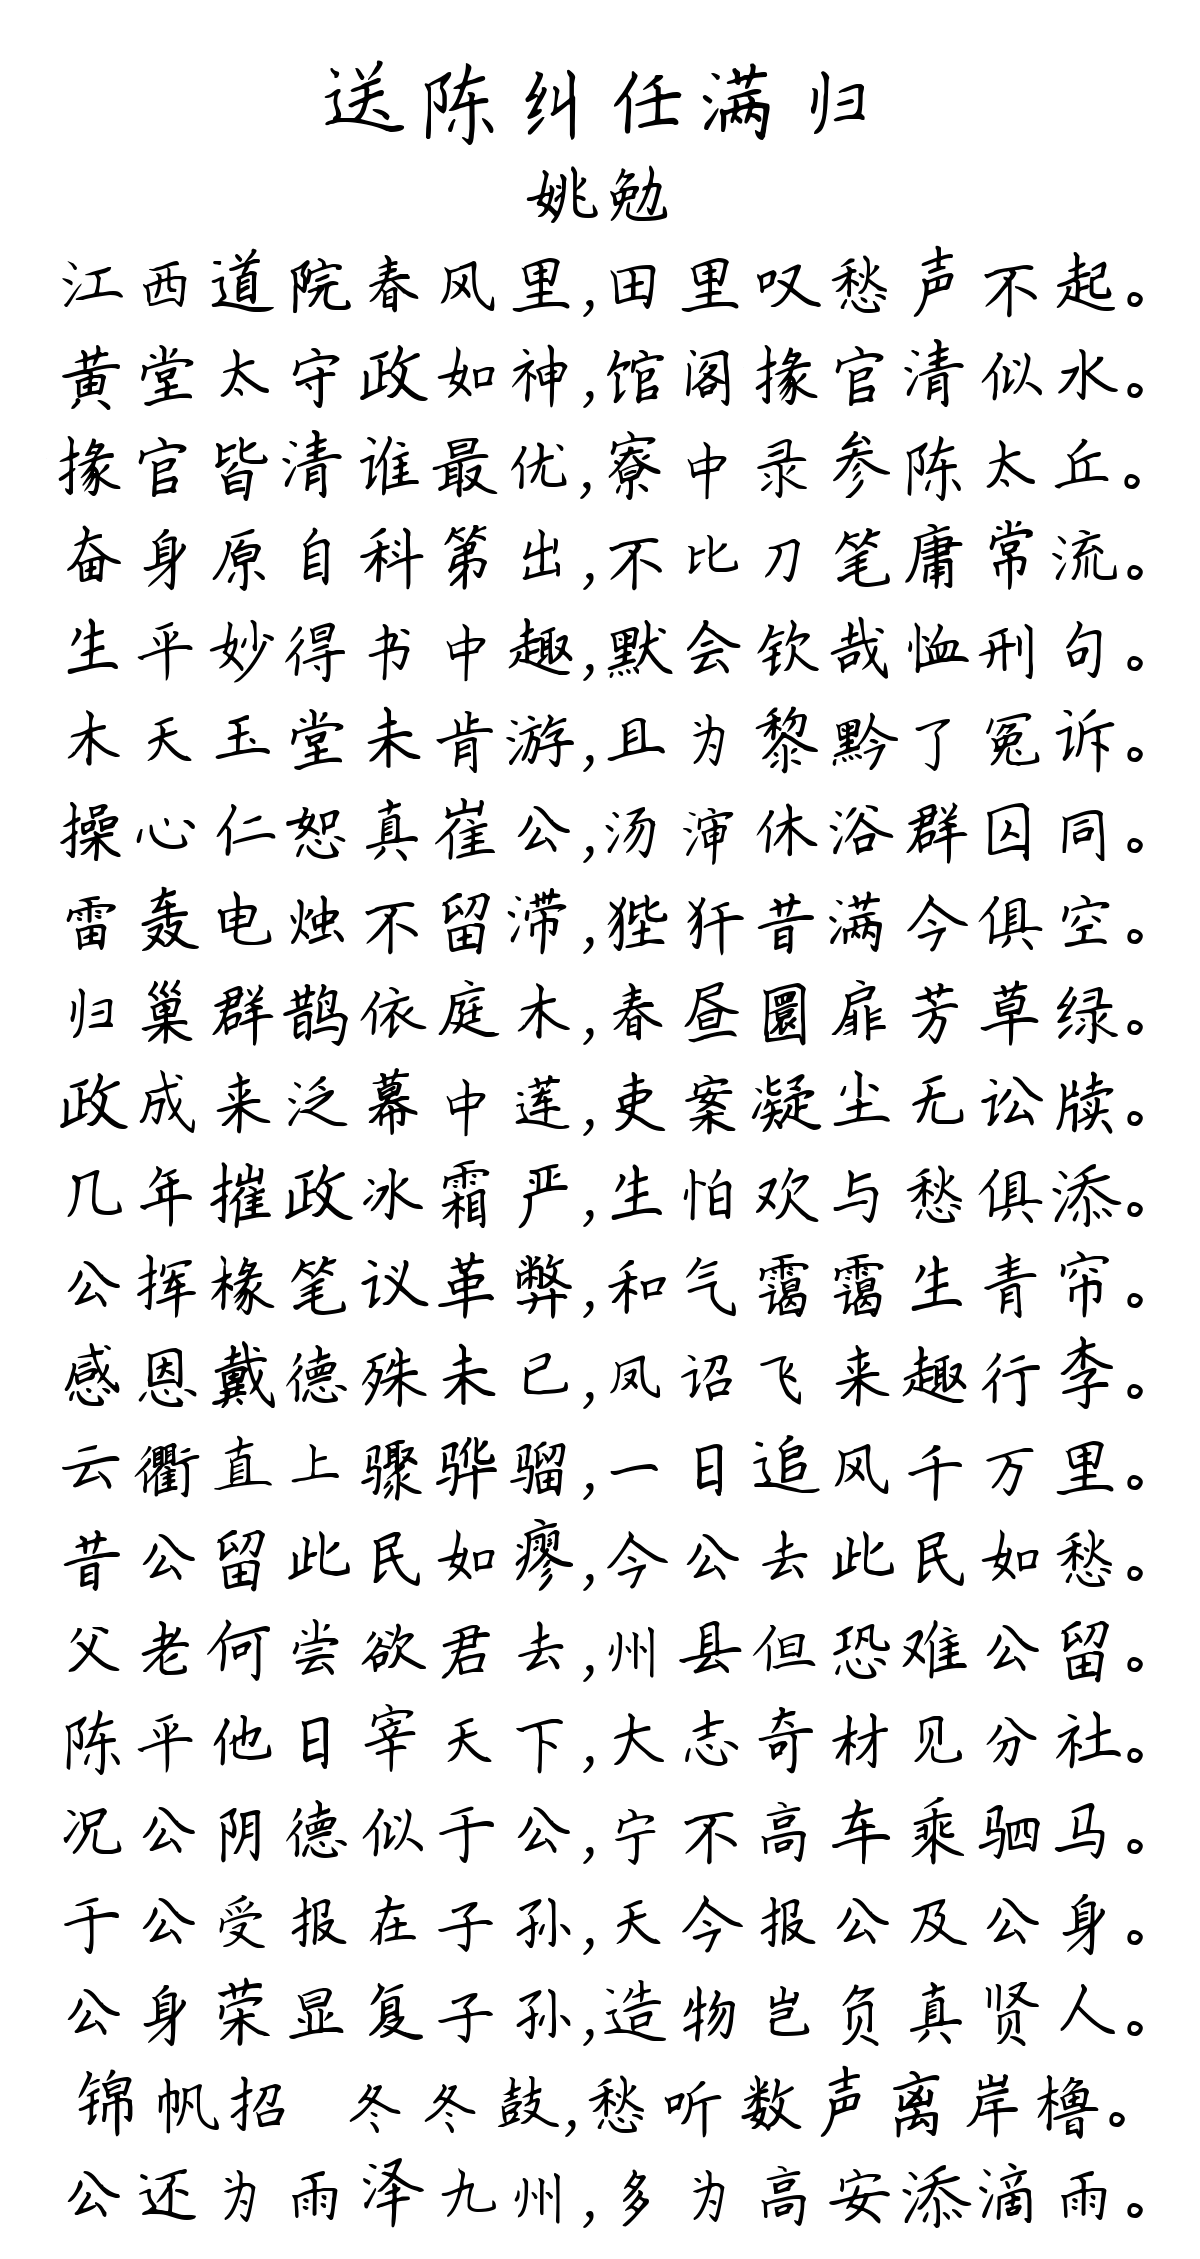 送陈纠任满归
姚勉
江西道院春风里,田里叹愁声不起。
黄堂太守政如神,馆阁掾官清似水。
掾官皆清谁最优,寮中录参陈太丘。
奋身原自科第出,不比刀笔庸常流。
生平妙得书中趣,默会钦哉恤刑句。
木天玉堂未肯游,且为黎黔了冤诉。
操心仁恕真崔公,汤渖休浴群囚同。
雷轰电烛不留滞,狴犴昔满今俱空。
归巢群鹊依庭木,春昼圜扉芳草绿。
政成来泛幕中莲,吏案凝尘无讼牍。
几年摧政冰霜严,生怕欢与愁俱添。
公挥椽笔议革弊,和气霭霭生青帘。
感恩戴德殊未已,凤诏飞来趣行李。
云衢直上骤骅骝,一日追风千万里。
昔公留此民如瘳,今公去此民如愁。
父老何尝欲君去,州县但恐难公留。
陈平他日宰天下,大志奇材见分社。
况公阴德似于公,宁不高车乘驷马。
于公受报在子孙,天今报公及公身。
公身荣显复子孙,造物岂负真贤人。
锦帆招 冬冬鼓,愁听数声离岸橹。
公还为雨泽九州,多为高安添滴雨。